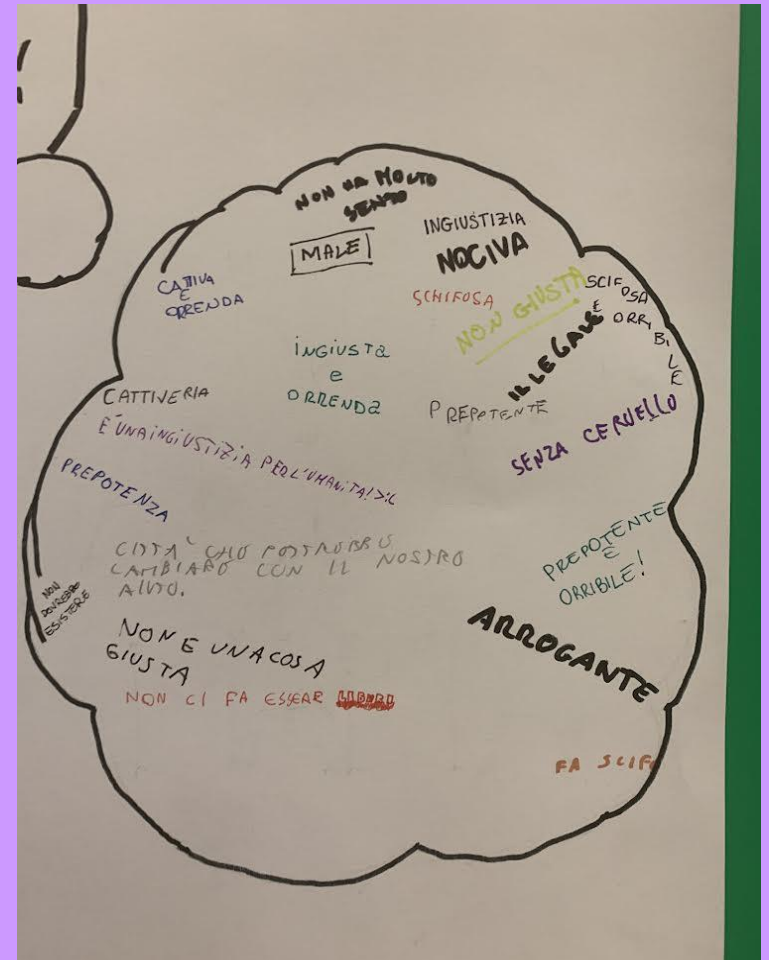 NON HA MOLTO
SENSO
MALE
INGIUSTIZIA
NOCIVA
CATTIVA
E
ORRENDA
SCHIFOSA
NON GIUSTA
SCIFOSA
E ORRIBILE
INGIUSTa
e
ORRENDa
ILLEGALE
CATTIVERIA
PREPOTENTE
SENZA CERVELLO
É UNA INGIUSTIZIA PER L'UMANITA! >:(
PREPOTENZA
CITTA' CHO POTROBBO
CAMBIARO CON IL NOSTRO
AIUTO.
PREPOTENTE
E
ORRIBILE!
NON
DOVREBBE
ESISTERE
NON E UNA COSA
GIUSTA
ARROGANTE
NON CI FA ESSEAR LIBERI
FA SCIFO